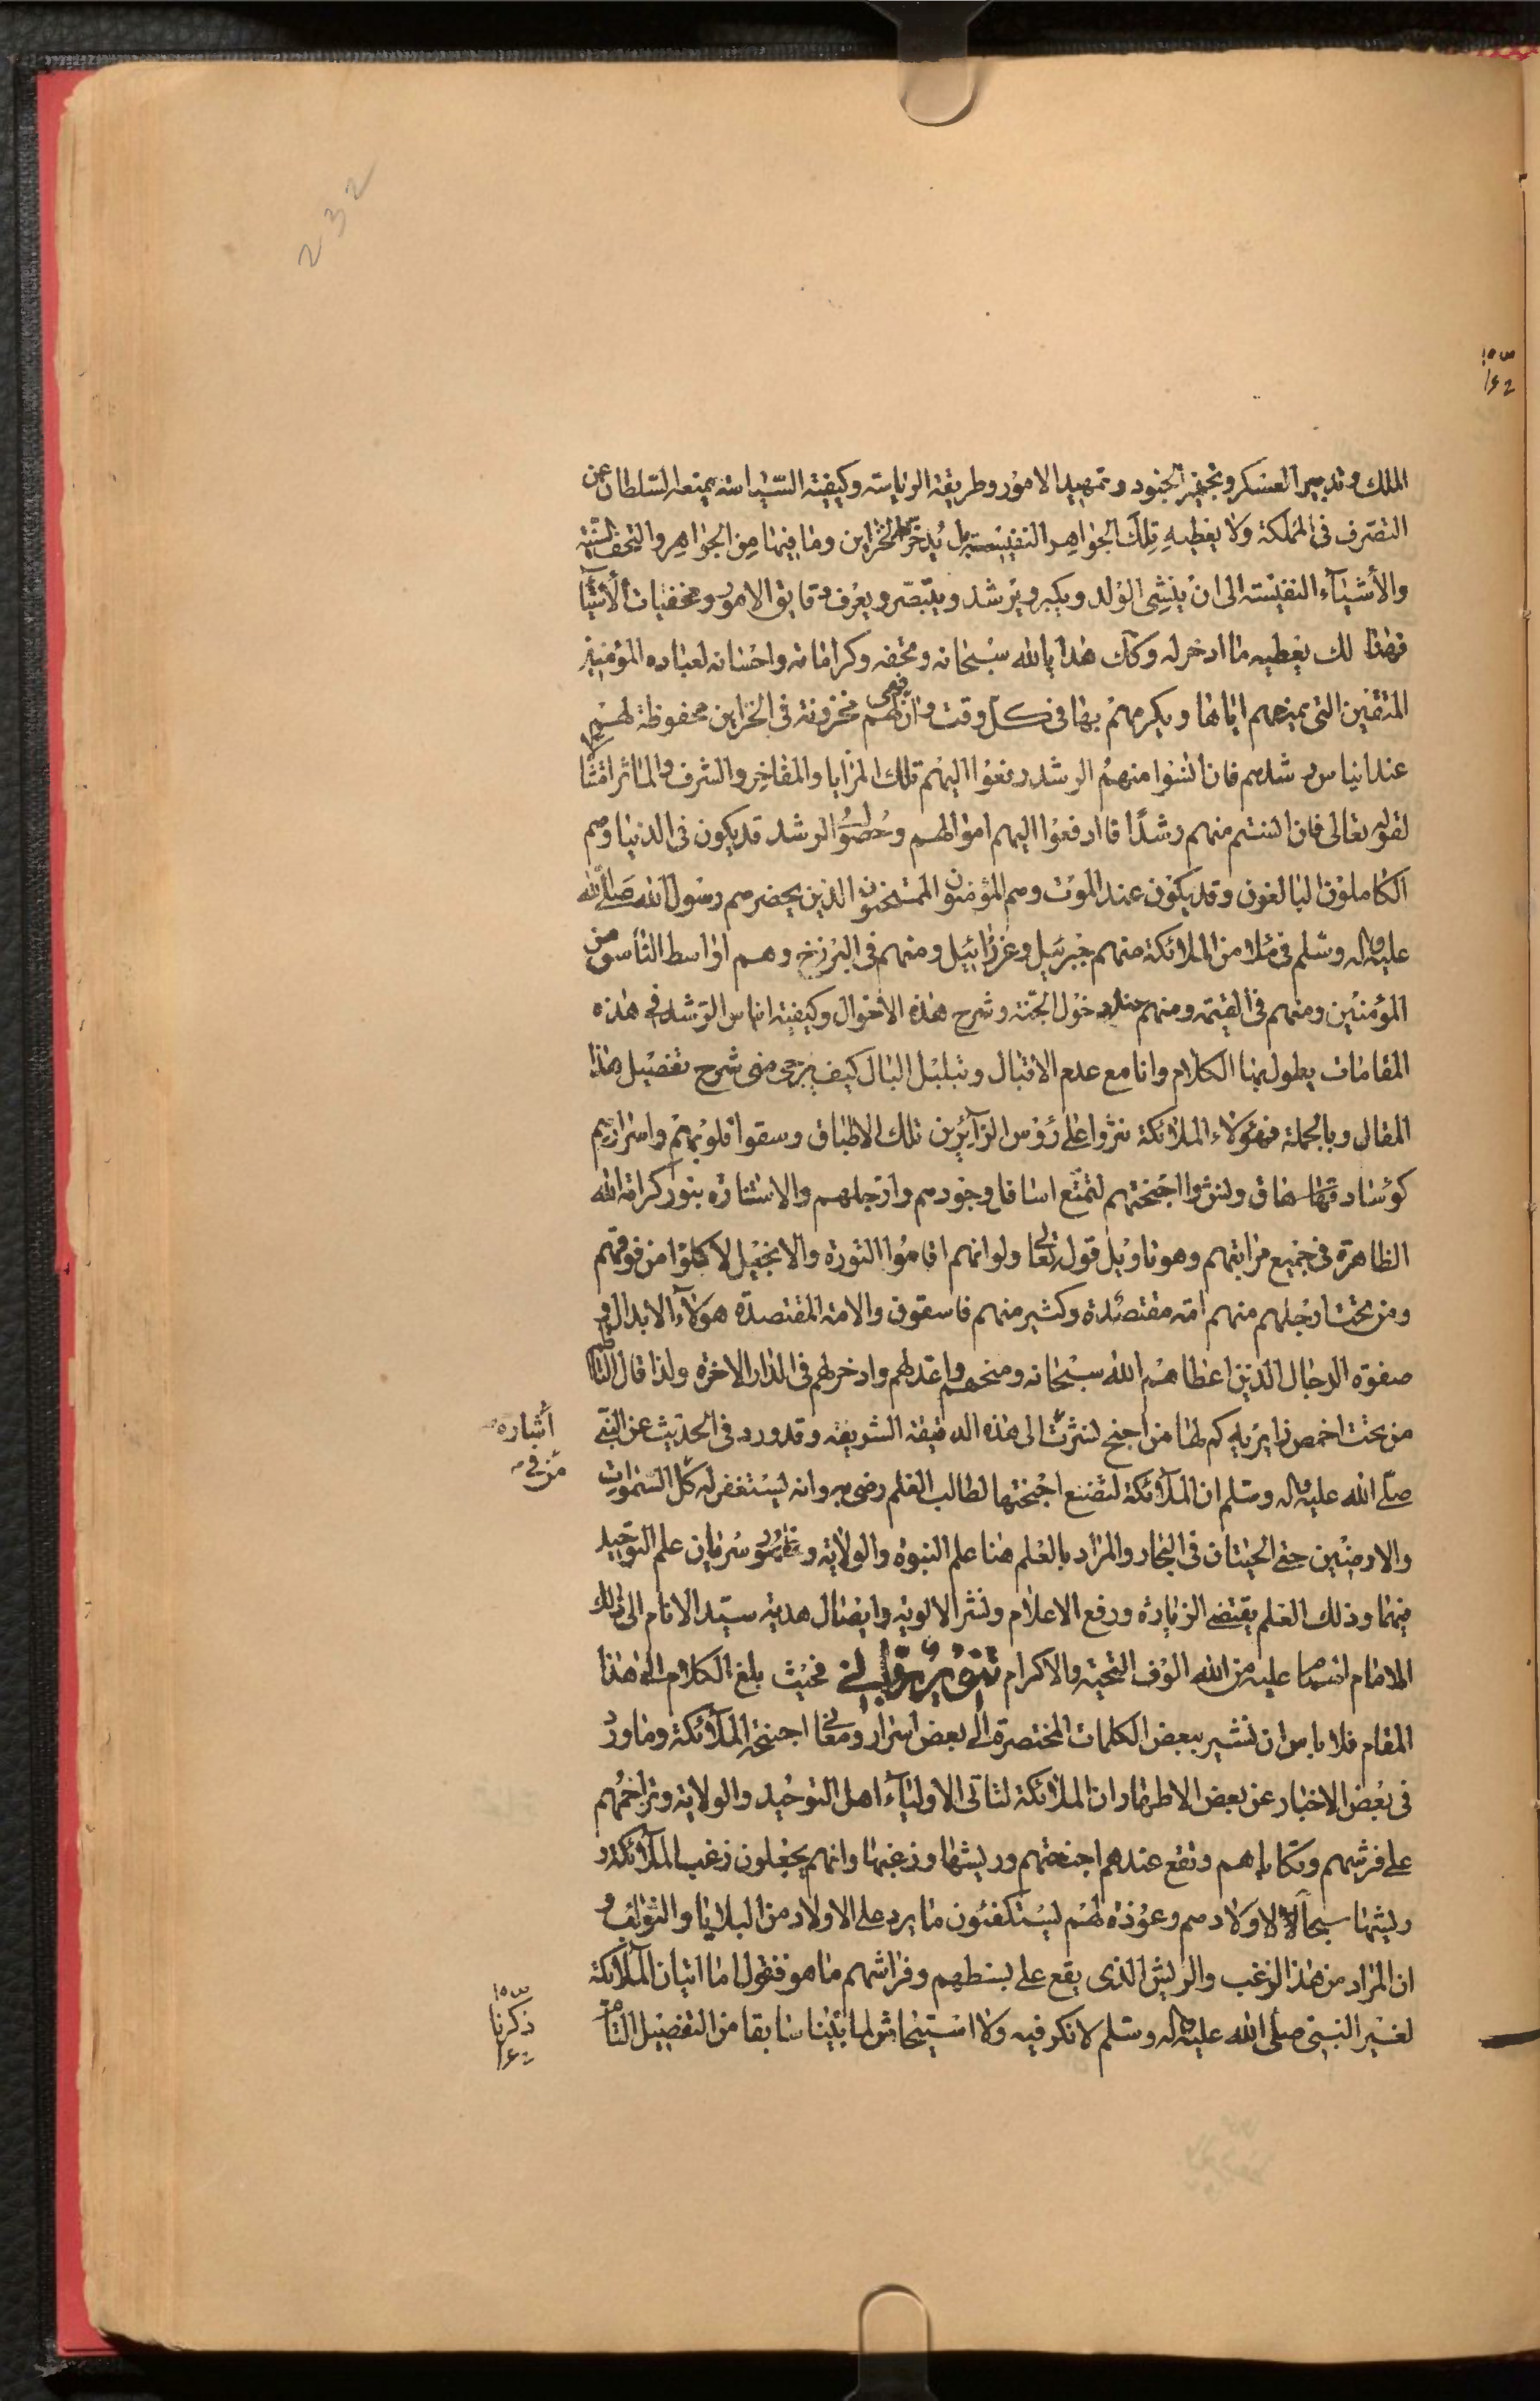 232
الملك وتدبير العسكر وتجهيز الجنود وتمهيد الامور وطريقة الرياسة وكيفية السياسة يمنعه السلطان عن
التصرف فى المملكة ولا يعطيه تلك الجواهر النفيسة بل يدخر له الخزاين وما فيها من الجواهر والتحف السنية
والأشيآء النفيسة الى ان ينشى الولد ويكبر ويرشد ويتبصر ويعرف دقايق الامور ومخفيات الأشيآ
فهنا لك يعطيه ما ادخر له وكك هدايا الله سبحانه وتحفه وكراماته واحسانه لعباده المؤمنين
المتقين التى يمنحهم اياها ويكرمهم بها فى كل وقت وان لهم فهى مخزونة فى الخزاين محفوظة لهم
عند ايناس رشدهم فان آنسوا منهم الرشد دفعوا اليهم تلك المزايا والمفاخر والشرف والمآثر امتثالا
لقوله تعالى فان آنستم منهم رشدًا فا ادفعوا اليهم اموالهم وحصول الرشد قد يكون فى الدنيا وهم
الكاملون البالغون وقد يكون عند الموت وهم المؤمنون الممتحنون الذين يحضرهم رسول الله صلى الله
عليه واله وسلم فى ملا من الملائكة منهم جبرئيل وعزرائيل ومنهم فى البرزخ وهم اواسط الناس من
المؤمنين ومنهم فى القيمة ومنهم عند دخول الجنة وشرح هذه الاحوال وكيفية ايناس الرشد فى هذه
المقامات يطول بها الكلام وانا مع عدم الاقبال وتبلبل البال كيف يرجى منى شرح تفصيل هذا
المقال وبالجملة فهؤلاء الملائكة نثروا على رؤس الزآئرين تلك الاطباق وسقوا قلوبهم واسرارهم
كؤسا دهاقا ونشروا اجنحتهم لتمتع اسافل وجودهم وارجلهم والاستنارة بنور كرامة الله
الظاهرة فى جميع مراتبهم وهو تاويل قوله تعالى ولو انهم اقاموا التورة والانجيل لاكلوا من فوقهم
ومن تحت ارجلهم منهم امة مقتصدة وكثير منهم فاسقون والامة المقتصدة هولآء الابدال و
صفوة الرجال الذين اعطاهم الله سبحانه ومنحهم واعد لهم وادخر لهم فى الدار الاخرة ولذا قال الناظم
من تحت اخمص زايريه كم لها من اجنح نشرت الى هذه الدقيقة الشريفة وقد ورد فى الحديث عن النبى
أشاره
صلى الله عليه واله وسلم ان الملآئكة لتضع اجنحتها لطالب العلم رضى به وانه ليستغفر له كل السموات
من فى
والارضين حتى الحيتان فى البحار والمراد بالعلم هنا علم النبوة والولاية وظهور سريان علم التوحيد
فيهما وذلك العلم يقتضى الزيارة ورفع الاعلام ونشر الالوية وايصال هدية سيد الانام الى ذلك
الامام عليهما من الله الوف التحية والاكرام تنوير فحيث بلغ الكلام الى هذا
المقام فلا باس ان نشير ببعض الكلمات المختصرة الى بعض اسرار ومعانى اجنحة الملآئكة وما ورد
فى بعض الاخبار عن بعض الاطهار ان الملائكة لتاتى الاوليآء اهل التوحيد والولاية وتزاحمهم
على فرشهم وتكاياهم وتقع عندهم اجنحتهم وريشها وزغبها وانهم يجعلون زغب الملآئكة و
ريشها سخابا لاولادهم وعوذة لهم ليستكفئون ما يرد على الاولاد من البلايا والنوايب و
ان المراد من هذا الزغب والريش الذى يقع على بسطهم وفراشهم ما هو فنقول اما اتيان الملآئكة
لغير النبى صلى الله عليه واله وسلم لا نكر فيه ولا استيحاش لما بينا سابقا من التفصيل التام
ذكرنا